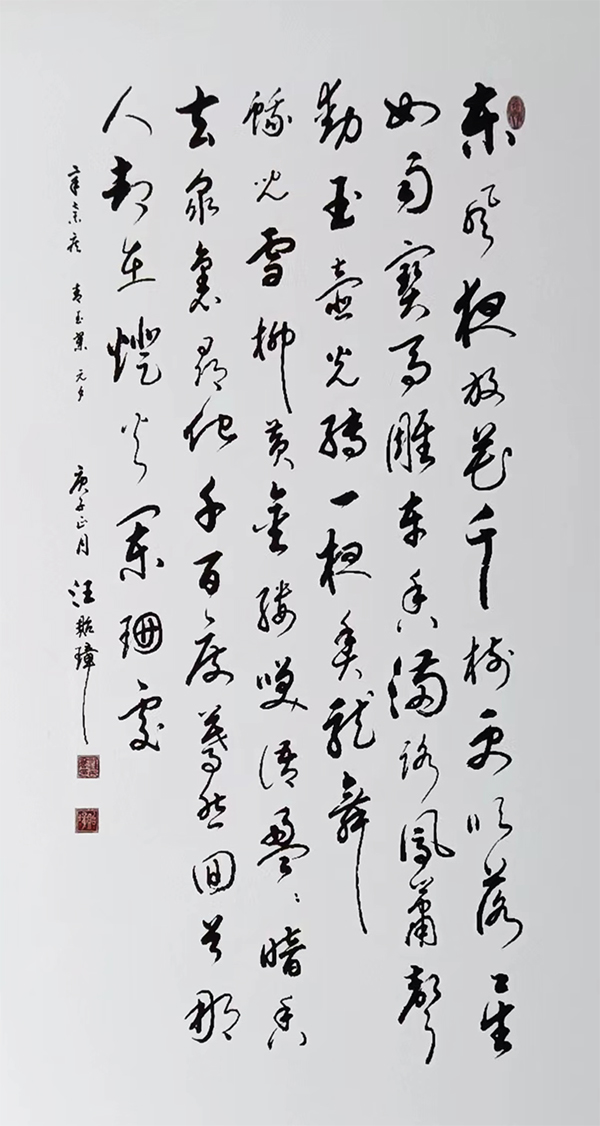 東風夜放花千樹更吹落星
如雨寶馬雕車香滿路鳳簫聲
動玉壺光轉一夜魚龍舞
蛾兒雪柳黃金縷笑語盈盈暗香
去衆裏尋他千百度驀然回首那
人却在燈火闌珊處
辛棄疾 青玉案 元夕 庚子正月 汪